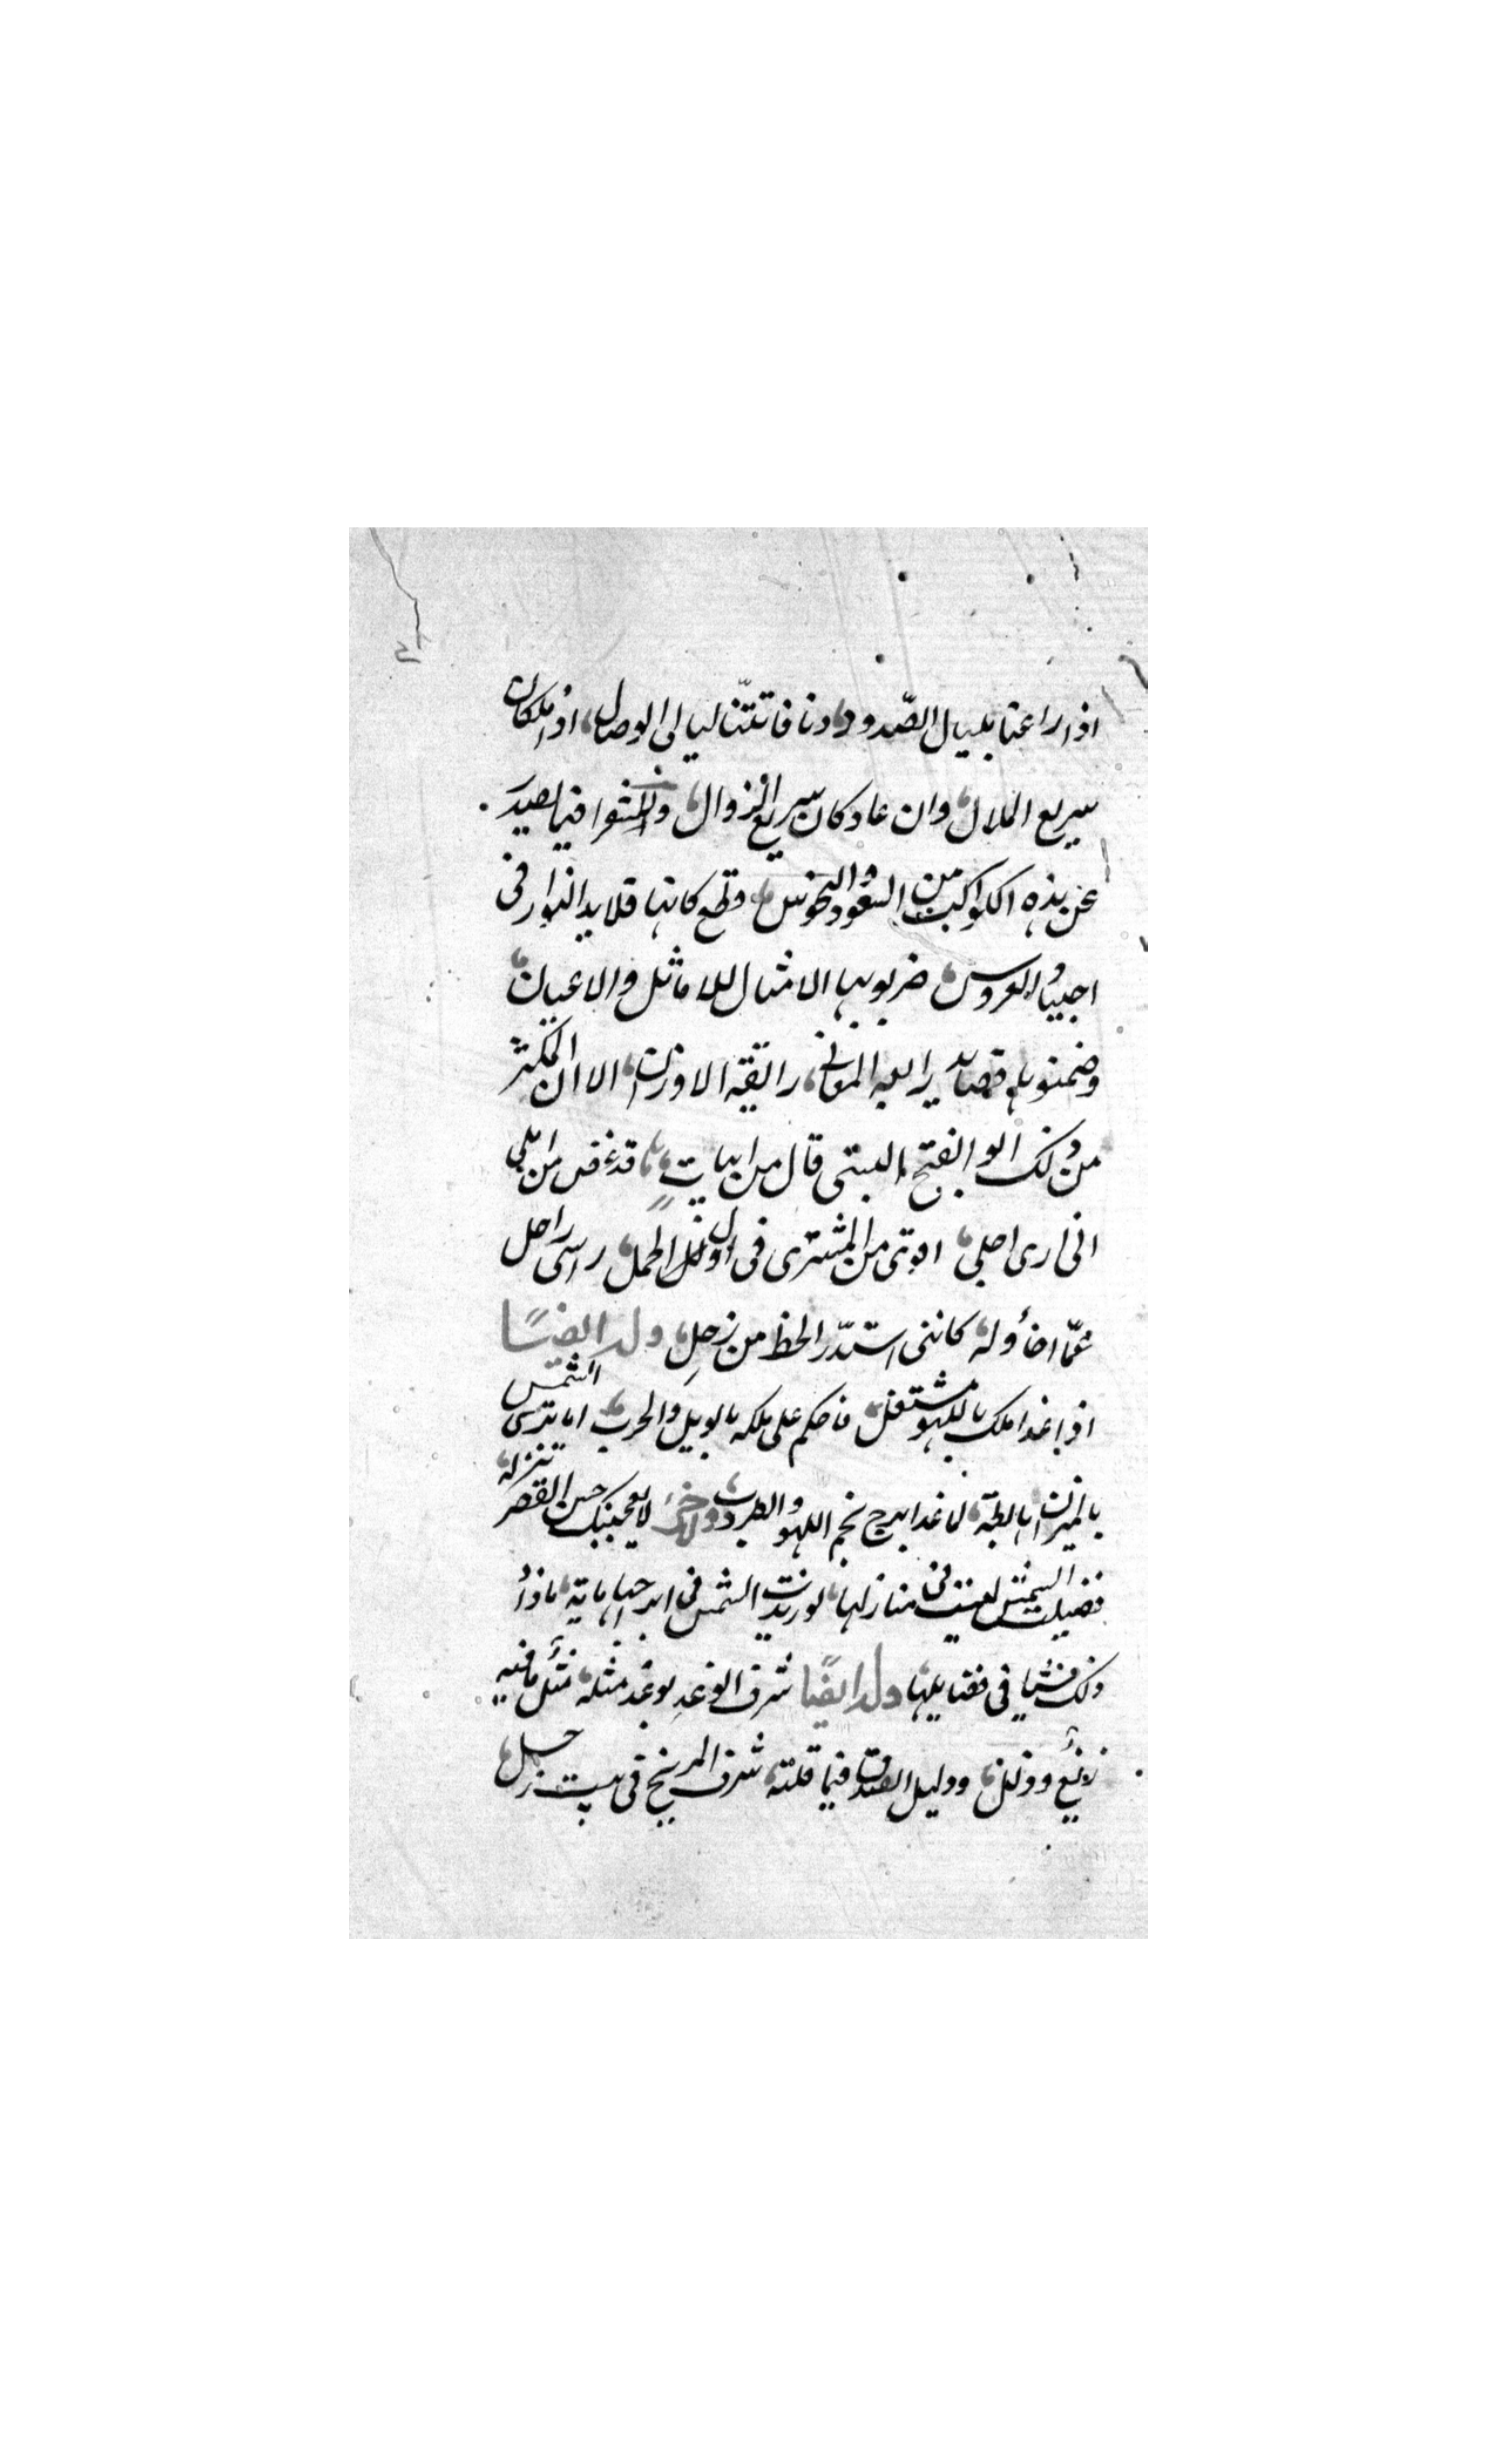 اذا راعنا بليال الصّدود دنا فاتتنا ليالى الوصال اذا ملّ كان
سريع الملال وان عاد كان سريع الزوال والشعرا فيما يصدر
عن هذه الكواكب من السعود والنحوس وقطع كانها قلايد النوار فى
اجياد العروس ضربوا بها الامثال للاماثل والاعيان
وضمنوها قصايد رايعه المعانى رائقة الاوزان الا ان المكثر
من ذلك ابو الفتح البستى قال من ابيات قد غض من املى
انى ارى عملى اقوى من المشترى فى اول الحمل راسى راحل
عمّا احاوله كاننى استدّر الحظ من زحلِ وله ايضًا
اذا غدا ملك باللهو مشتغل فاحكم على ملكه بالويل والحرب اما ترى الشمس
بالميزان هابطة لما غدا برج نجم اللهو والطرب ولاخر لا يعجبنك حسن القصر تنزله
فضيلة الشمس ليست فى منازلها لو زيدت الشمس فى ابراجها ماية ما زاد
ذلك شيا فى فضايلها وله ايضًا شرف الوغد بوغد مثله مثل ما فيه
زيغ وزلل ودليل الصدق فيما قلته شرف المريخ فى بيت زحل